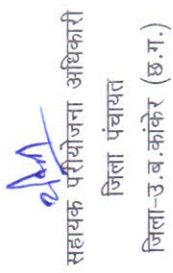 सहायक परीयोजना अधिकारी
जिला पंचायत
जिला-उ.ब.कांकेर (छ.ग.)